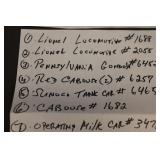 ① Lionel Locomotive #1688
② Lionel Locomotive #2055
③ Pennsylvania Gondola #6452
④ Red Caboose(2) #6257
⑤ Sunoco Tank Car #6465
⑥ Caboose #1682
⑦ Operating Milk Car #347